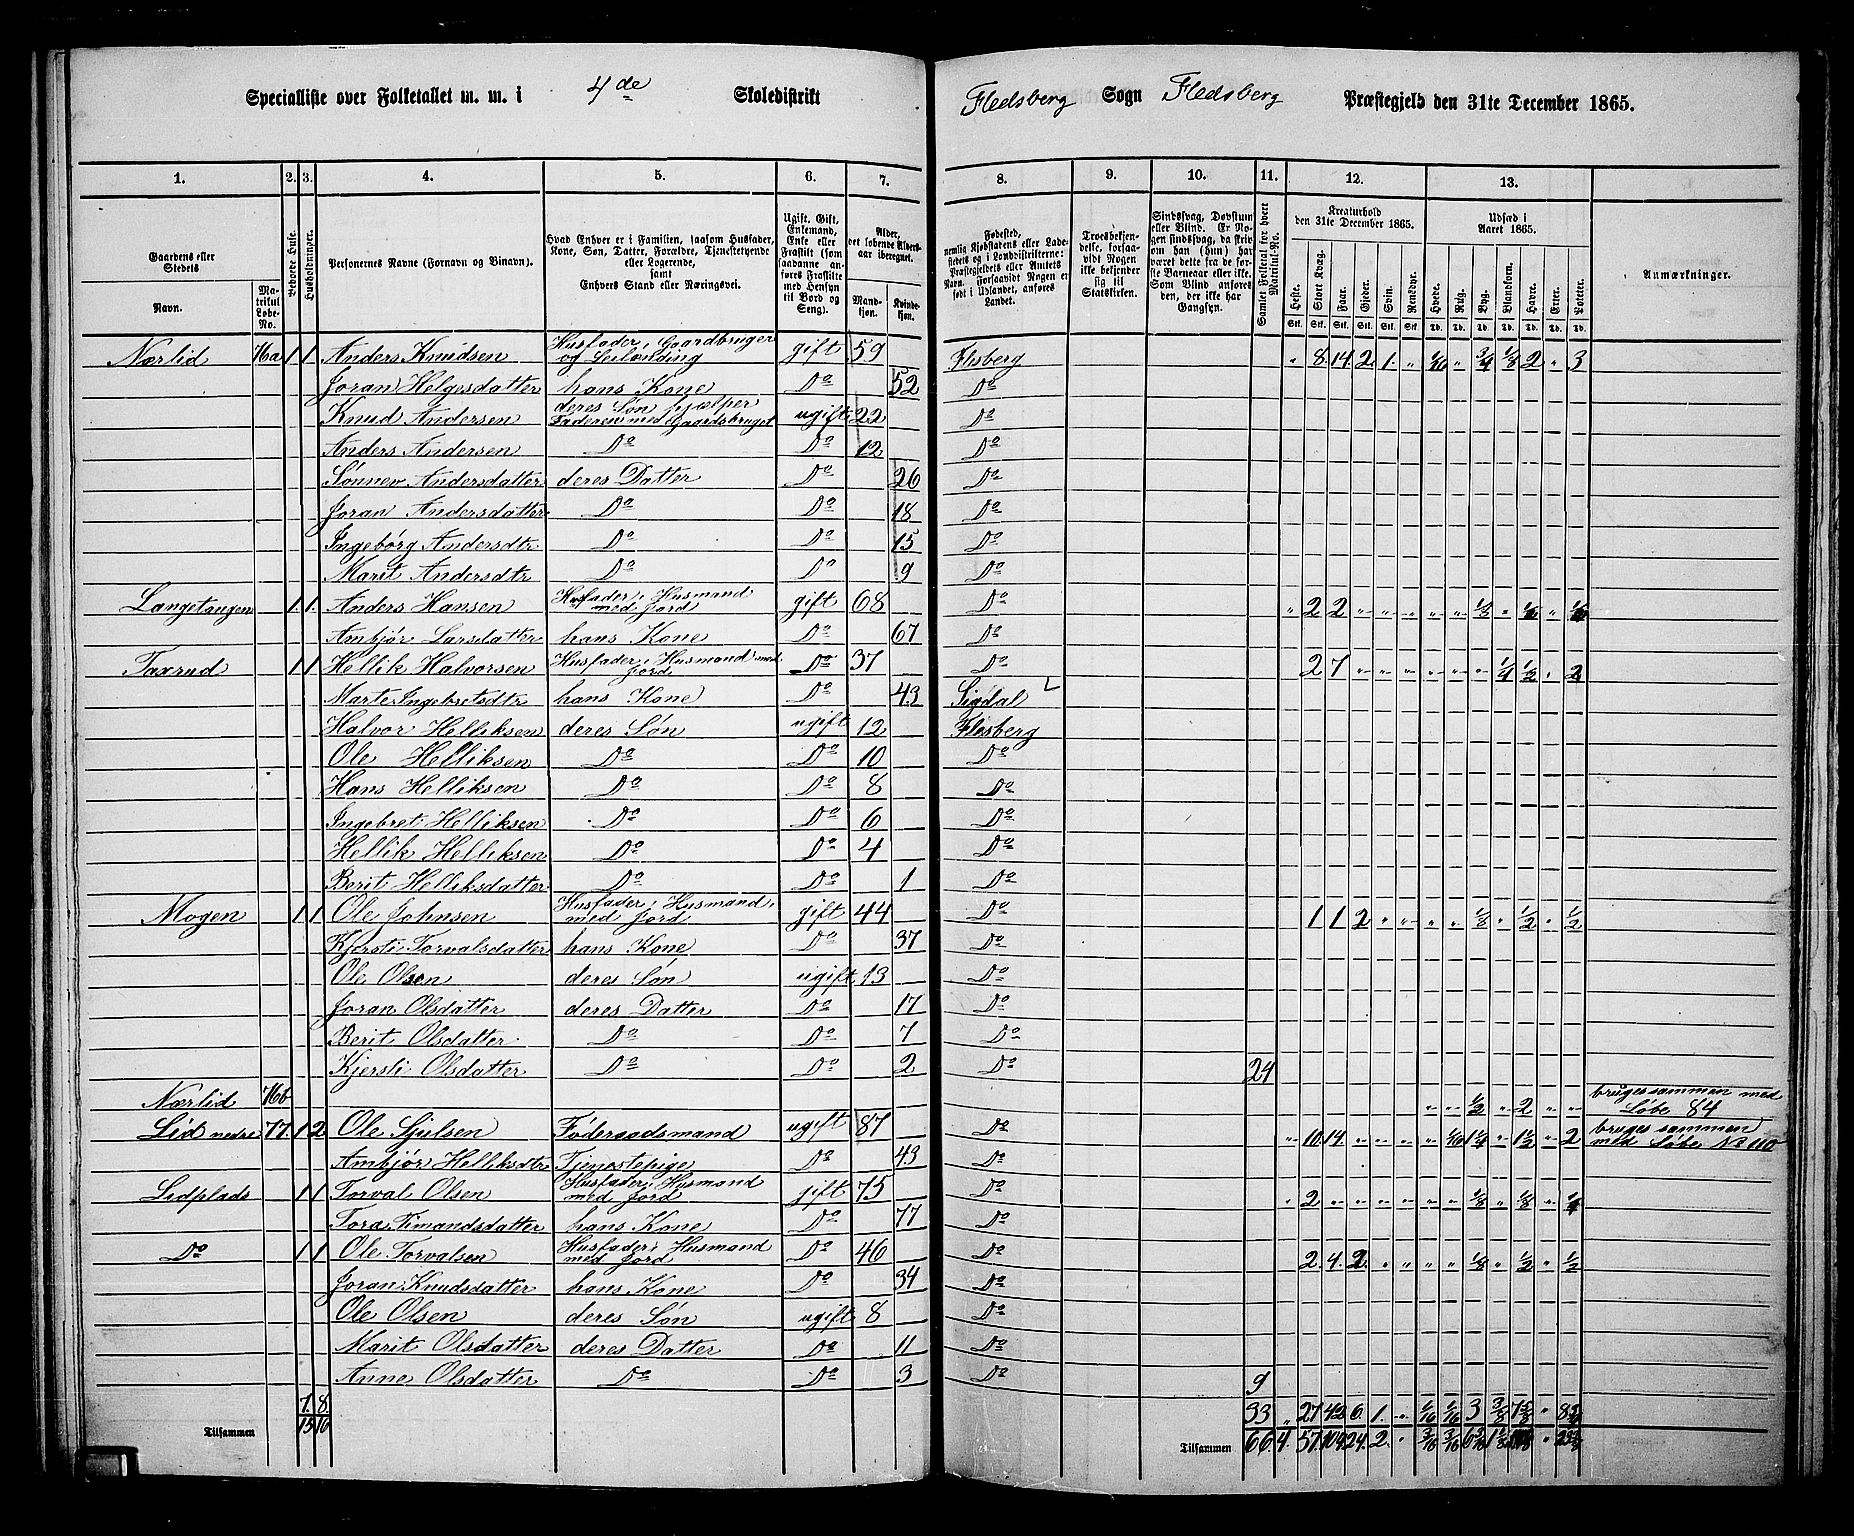 Specialliste over Folketallet m. m. i 4de Skoledistrikt Flesberg Sogn Flesberg Præstegjeld den 31te December 1865.
1. 2. 3. 4. 5. 6. 7. 8. 9. 10. 11. 12. 13.
Gaardens eller Stedets
Navn.
Matrikul Løbe-No.
Beboede Huse.
Husholdninger.
Personernes Navne (Fornavn og Binavn).
Hvad Enhver er i Familien, saasom Husfader, Kone, Søn, Datter, Forældre, Tjenestetyende eller Logerende, samt Enhvers Stand eller Næringsvei.
Ugift, Gift, Enkemand, Enke eller Fraskilt (saadanne anføres Fraskilte med Hensyn til Bord og Seng).
Alder, det løbende Aldersaar iberegnet.
Mandkjøn. Kvindekjøn.
Fødested, nemlig Kjøbstadens eller Ladestedets og i Landdistrikterne: Præstegjeldets eller Amtets Navn. Forsaavidt Nogen er født i Udlandet, anføres Landet.
Troesbekjendelse, forsaavidt Nogen ikke bekjender sig til Statskirken.
Sindssvag, Døvstum eller Blind. Er Nogen sindssvag, da skrives om han (hun) har været dette fra de første Barneaar eller ikke. Som Blind anføres der, der ikke har Gangsyn.
Samlet Folketal for hvert Matrikul-No.
Kreaturhold den 31te December 1865.
Heste. Stort Kvæg. Faar. Gjeder. Svin. Rensdyr.
Udsæd i Aaret 1865.
Hvede. Rug. Byg. Blandkorn. Havre. Erter. Poteter.
Anmærkninger.
Nærlid 76a 1 1 Anders Knudsen Husfader, Gaardbruger og Selveiending gift 59 Flesberg " 8 14 2 1 " 1/16 " 3/4 1/8 2 " 3
Joran Helgesdatter hans Kone Do 52 Do
Knud Andersen deres Søn hjælper Faderen med Gaardsbruget ugift 22 Do
Anders Andersen Do Do 12 Do
Sønnev Andersdatter deres Datter Do 26 Do
Joran Andersdatter Do Do 18 Do
Ingebørg Andersdtr Do Do 15 Do
Marit Andersdtr Do Do 9 Do
Langetangen 1 1 Anders Hansen Husfader, Husmand med Jord gift 68 Do " 2 2 " " " " " 1/8 " 1/6 "
Ambjør Larsdatter hans Kone Do 67 Do
Taxrud 1 1 Hellik Halvorsen Husfader, Husmand med Jord Do 37 Do 2 7 " " " " " " 1/4 1/2 " 2
Marte Ingebretsdtr hans Kone Do 43 Sigdal
Halvor Helliksen deres Søn ugift 12 Flesberg
Ole Helliksen Do Do 10 Do
Hans Helliksen Do Do 8 Do
Ingebret Helliksen Do Do 6 Do
Hellik Helliksen Do Do 4 Do
Berit Helliksdatter Do Do 1 Do
Mogen 1 1 Ole Johnsen Husfader, Husmand med Jord gift 44 Do 1 1 2 " " " " 1/8 " 1/2 " 1/2
Kjersti Torvalsdatter hans Kone Do 37 Do
Ole Olsen deres Søn ugift 13 Do
Joran Olsdatter deres Datter Do 17 Do
Berit Olsdatter Do Do 7 Do
Kjersti Olsdatter Do Do 2 Do 24
Nærlid 76b " " 1/2 " 2 " " bruges sammen med Løbe 84
Lid nedre 77 1 2 Ole Sjulsen Føderaadsmand ugift 87 Do " 10 14 " " " " 1/16 1 1/4 " 1 1/2 " 2 bruges sammen med Løbe No 110
Ambjør Helliksdtr Tjenestepige Do 43 Do
Lidplads 1 1 Torval Olsen Husfader, Husmand med Jord gift 75 Do " 2 " " " " " " 1/8 " 1/8 "
Tora Timandsdatter hans Kone Do 77 Do
Do 1 1 Ole Torvalsen Husfader, Husmand med Jord Do 46 Do 2 4 2 " " " " 1/8 " 1/2 " 1/2
Joran Knudsdatter hans Kone Do 34 Do
Ole Olsen deres Søn ugift 8 Do
Marit Olsdatter deres Datter Do 11 Do
Anne Olsdatter Do Do 3 Do 9
7 8 33 " 27 42 6 1 " 1/16 1/16 3 3/8 7 5/8 "
Tilsammen 15 16 Tilsammen 66 4 57 104 24 2 " 3/16 3/16